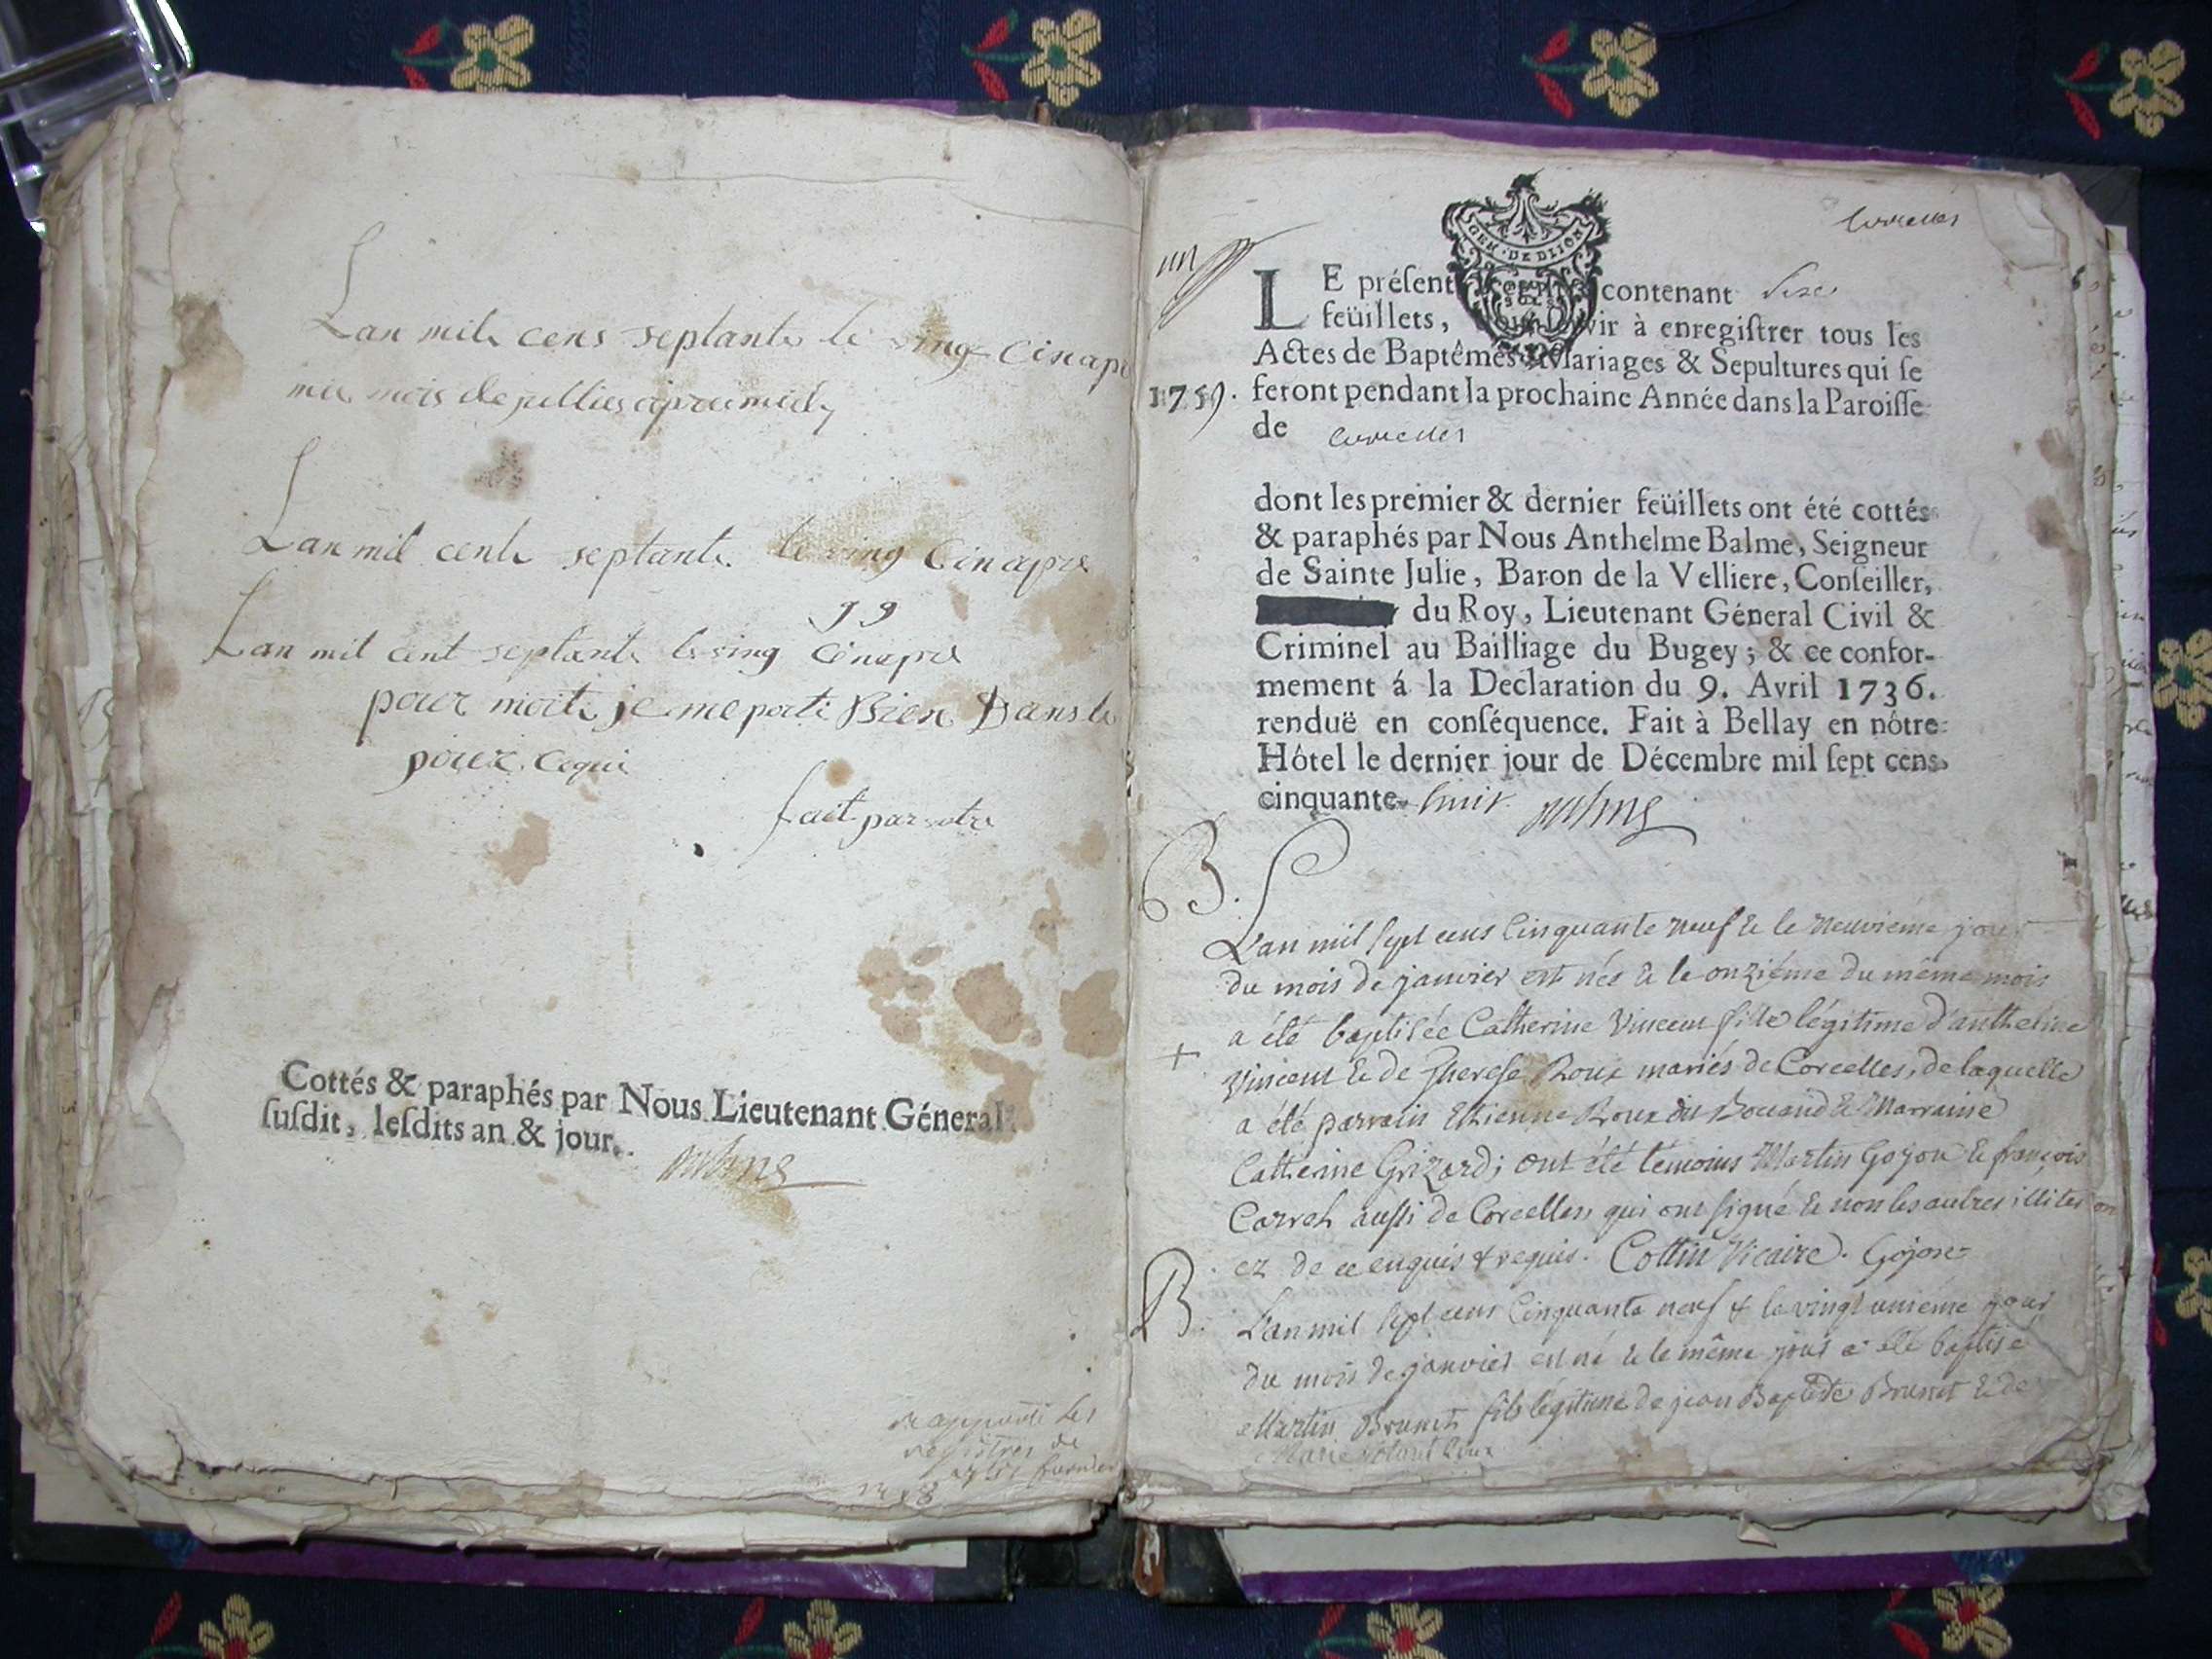 Lan mile cens septante le ving cinapr
mi mois de jullies apremidy
Lan mil cente septante le ving Cinapre
99
Lan mil cent septante le ving Cinapre
pour moite je me porte Bien Dans le
pour ce qui
fait par votre
Cottés & paraphés par Nous Lieutenant Géneral
ſuſdit, leſdits an & jour.
Balme
rapporté les
registres de
un
Corcelles
GEN. DE DLION
LE préſent Regiſtre contenant Seize
feüillets, pour ſervir à enregiſtrer tous les
Actes de Baptêmes, Mariages & Sepultures qui ſe
1759. feront pendant la prochaine Année dans la Paroiſſe
de Corcelles
dont les premier & dernier feüillets ont été cottés
& paraphés par Nous Anthelme Balme, Seigneur
de Sainte Julie, Baron de la Velliere, Conſeiller,
du Roy, Lieutenant Géneral Civil &
Criminel au Bailliage du Bugey; & ce confor-
mement á la Declaration du 9. Avril 1736.
renduë en conſéquence. Fait à Bellay en nôtre
Hôtel le dernier jour de Décembre mil ſept cens
cinquante huit Balme
B.
L'an mil sept cens Cinquante neuf & le neuvième jour
du mois de janvier est née & le onzième du même mois
a été baptisée Catherine Vincent fille légitime d'anthelme
+ Vincent & de Therese Roux mariés de Corcelles, de laquelle
a été parrain Etienne Roux du & Marraine
Catherine Grizard; ont été témoins Martin Gojon & françois
Carrel aussi de Corcelles qui ont signé & non les autres illiter
ez de ce enquis & requis. Cottin Vicaire. Gojon
B. L'an mil sept cens Cinquante neuf & le vingt unième jour
du mois de janvier est né & le même jour a été baptisé
Martin Brunet fils légitime de jean Baptiste Brunet & de
Marie